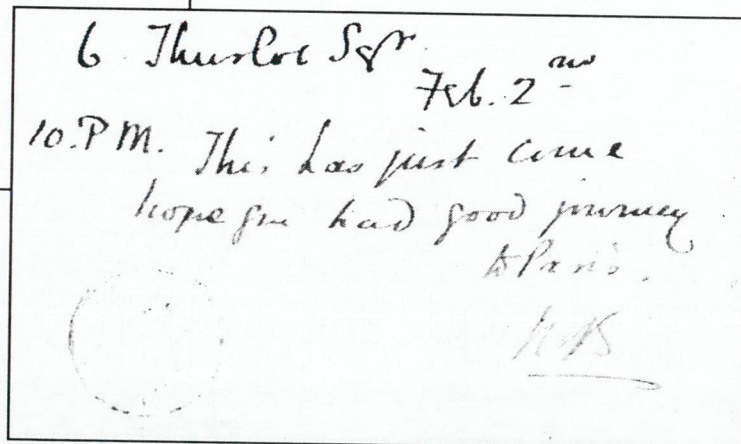 6 Thurloe Sqr.
Feb. 2nd
10.P.M. This has just come
hope you had good journey
to Paris.